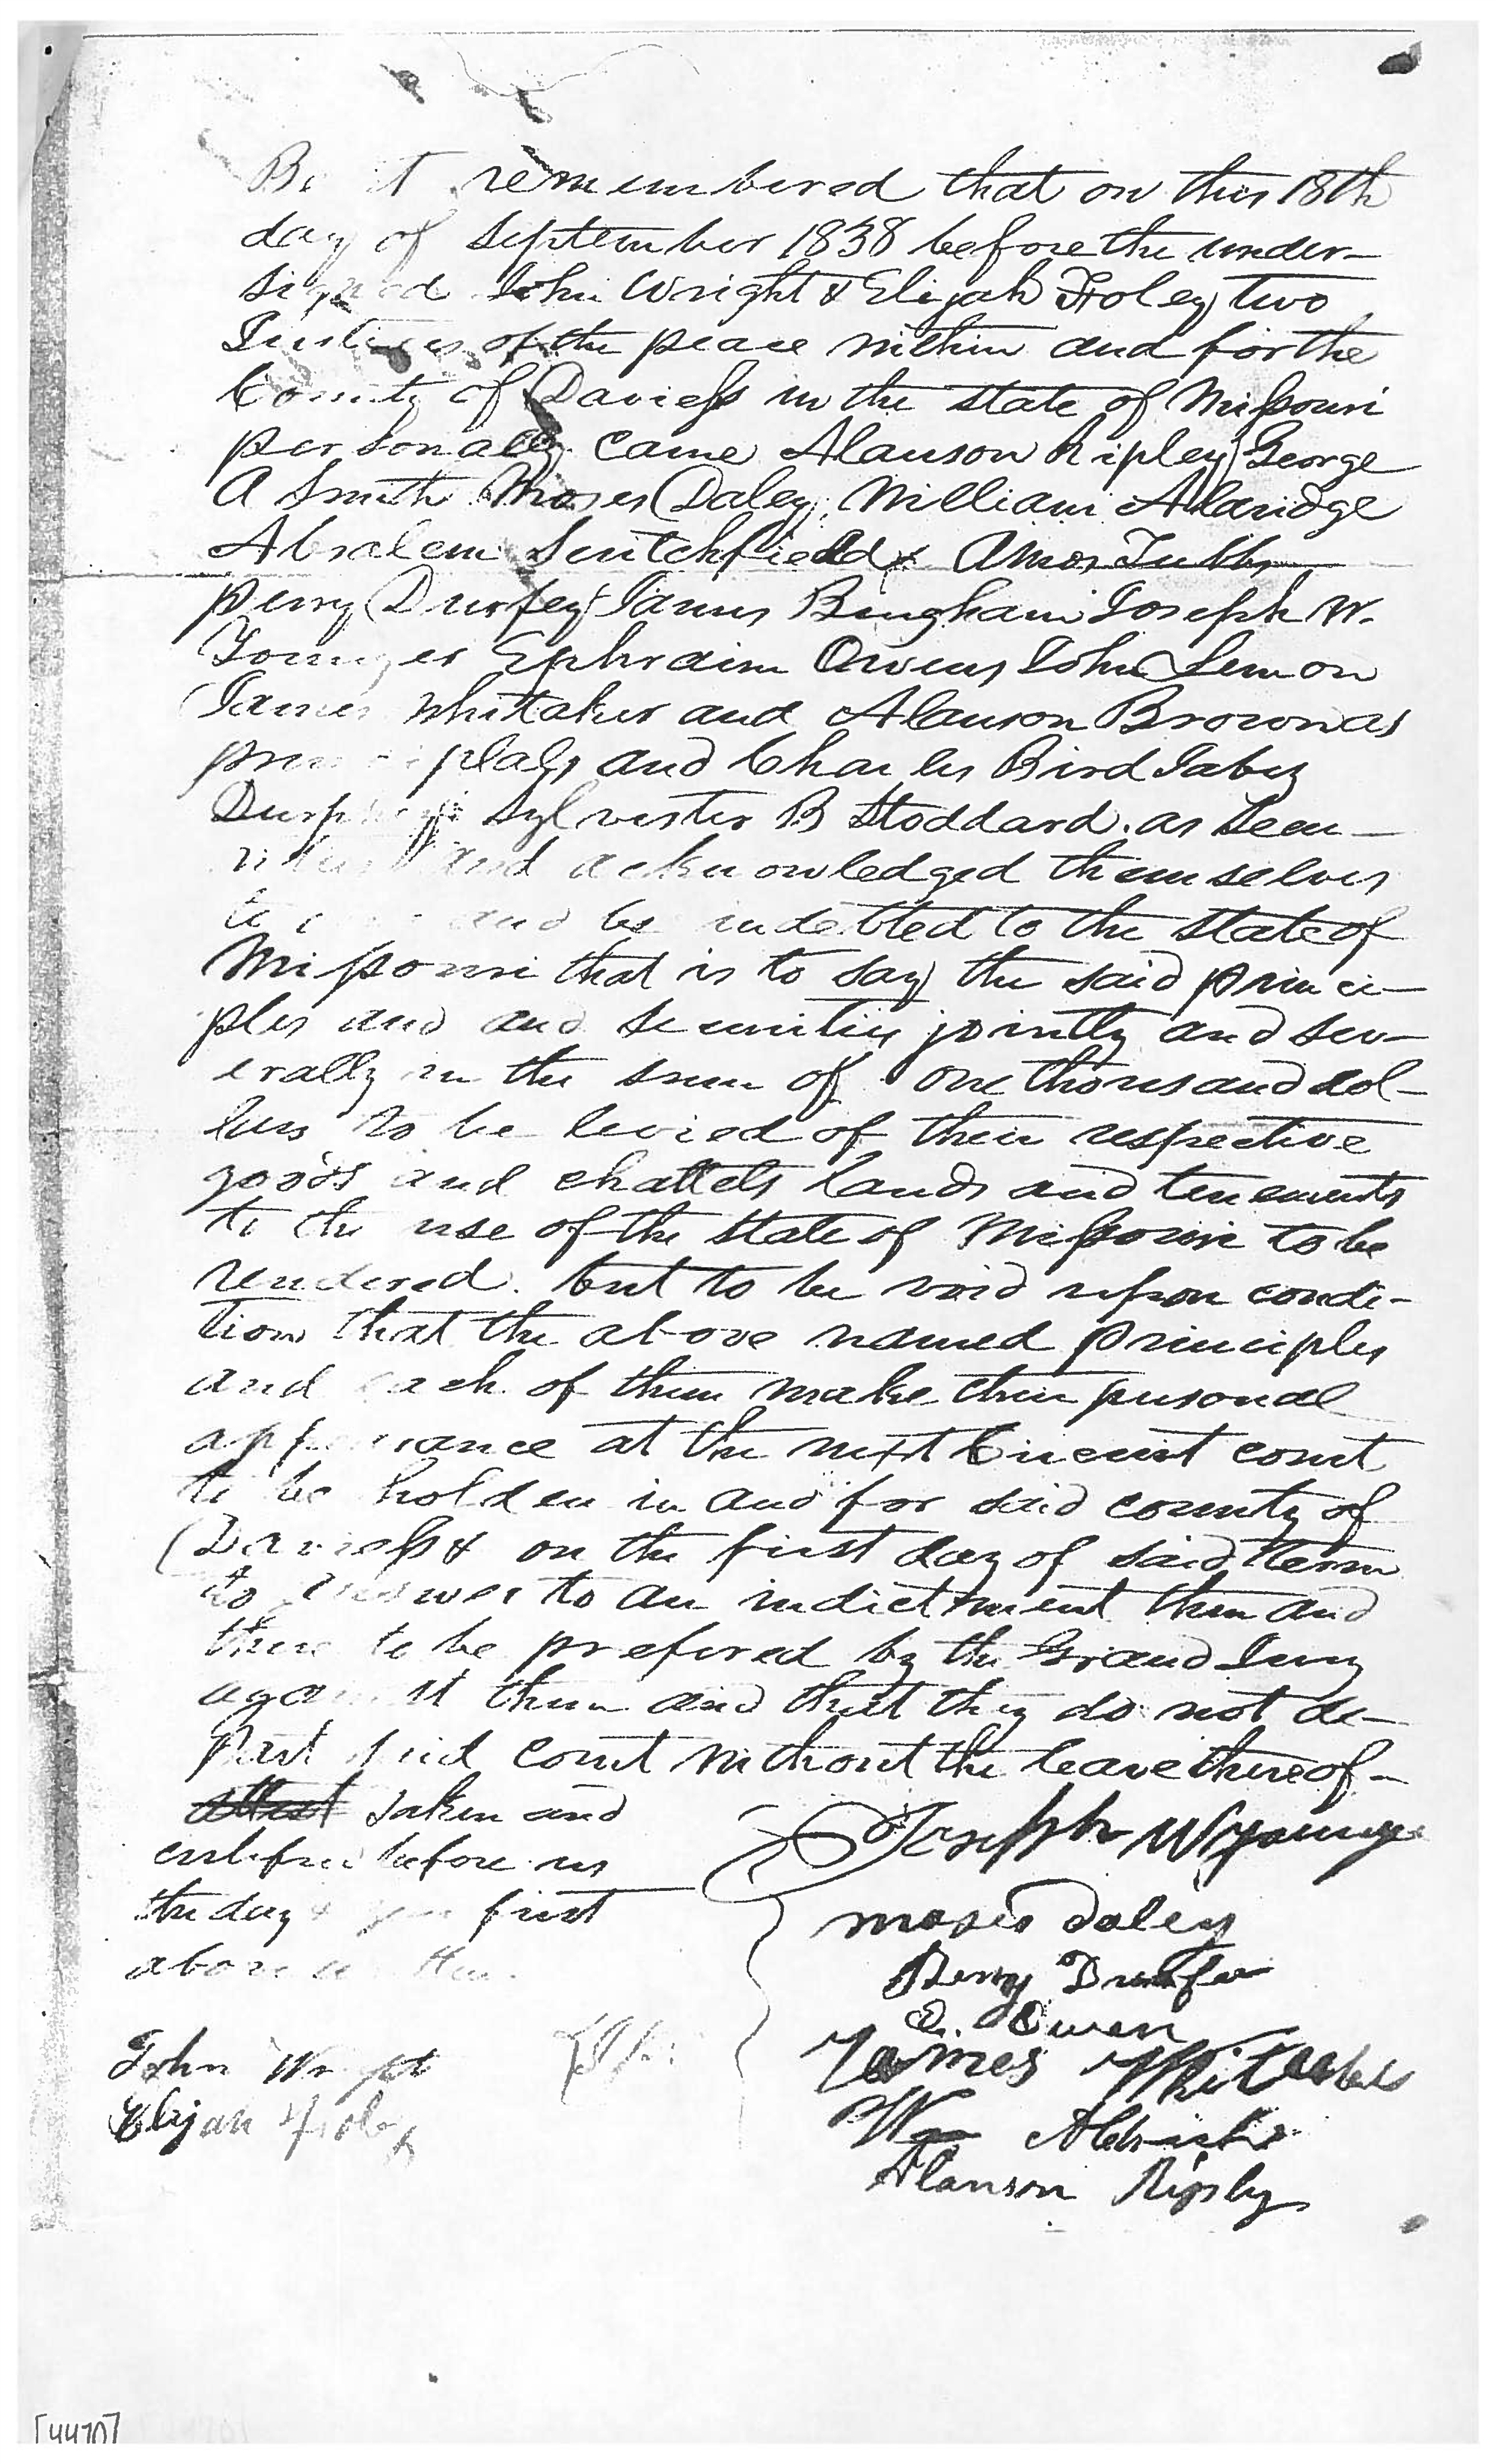 Be it remembered that on this 18th
day of September 1838 before the under-
signed John Wright & Elijah Foley two
Justices of the peace within and for the
County of Daviess in the state of Missouri
personally came Alanson Ripley George
A Smith Moses Daley, William Aldridge
Absalem Scritchfield & Amos Tubbs
perry Durfey James Bingham Joseph W.
Younger Ephraim Owens John Lemon
James Whitaker and Alanson Brown as
principals, and Charles Bird Jabez
Durphey Sylvester B Stoddard. as Secu-
rities and acknowledged themselves
to and be indebted to the state of
Missouri that is to say the said princi-
ples and and securities jointly and sev-
erally in the sum of one thousand dol-
lars to be levied of their respective
goods and chattels lands and tenements
to the use of the state of Missouri to be
rendered. but to be void upon condi-
tion that the above named principles
and each of them make their personal
appearance at the next Circuit court
to be holden in and for said county of
Daviess & on the first day of said term
to answer to an indictment then and
there to be prefered by the Grand Jury
against them and that they do not de-
part said court without the leave thereof-
attest taken and
certified before us
the day & year first
above written.
Joseph W Younge
moses daley
Perry Durfee
E. Owen
James Whitaker
Wm Aldrich
Alanson Ripley
John Wright
Elijah Foley
[4470]